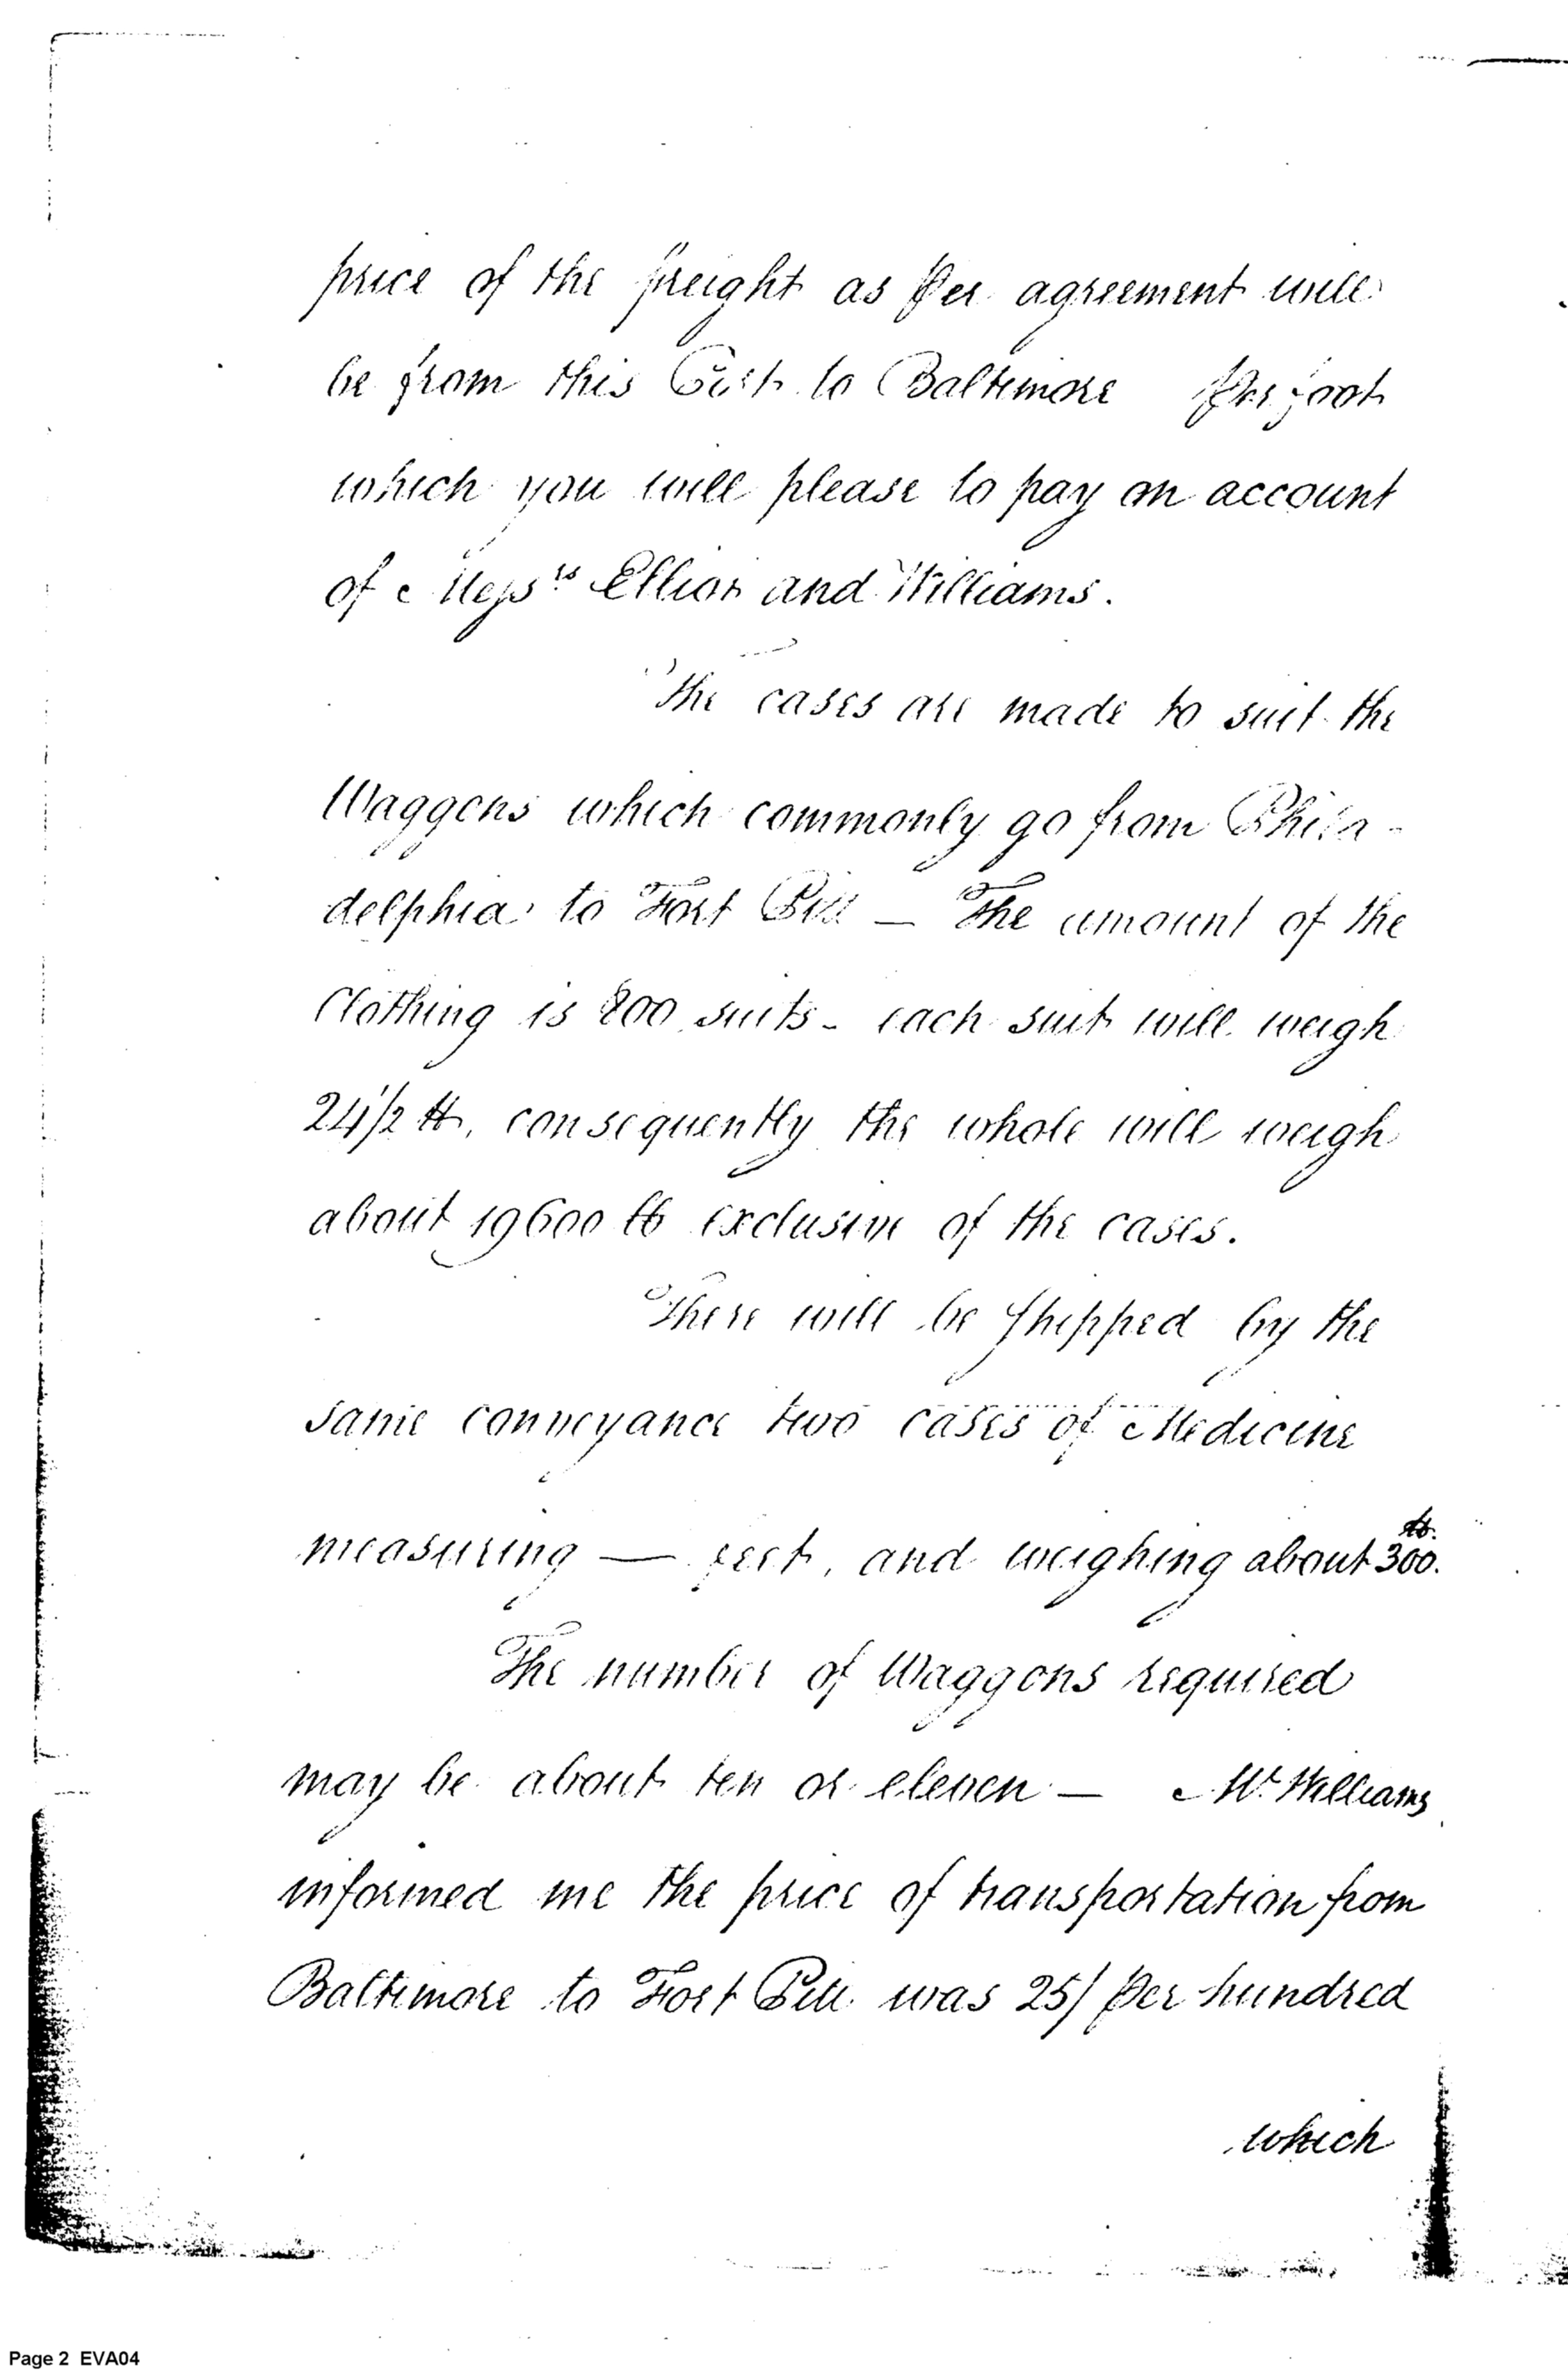 price of the freight as per agreement will
be from this Port to Baltimore per foot
which you will please to pay on account
of Messrs Elliot and Williams.
The cases are made to suit the
Waggons which commonly go from Phila-
delphia to Fort Pitt — The amount of the
Clothing is 800 suits - each suit will weigh
24 1/2 lb, consequently the whole will weigh
about 19600 lb exclusive of the cases.
There will be shipped by the
same conveyance two cases of Medicine
measuring — feet, and weighing about 300 lb.
The number of Waggons required
may be about ten or eleven — Mr. Williams
informed me the price of transportation from
Baltimore to Fort Pitt was 25/ per hundred
which
Page 2 EVA04